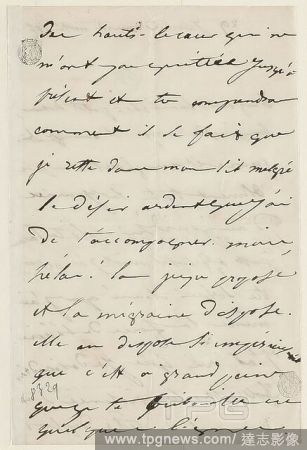 des hauts-le cœur qui ne
m'ont pas quittée jusqu'à
présent et tu comprendra
comment il se fait que
je reste dans mon lit malgré
le désir ardent que j'ai
de t'accompagner. mais
hélas! la juju propose
et la migraine dispose.
Elle en dispose si
que c'est à grand peine
que je te ce
quelques lignes
8329
TPG
www.tpgnews.com / 達志影像